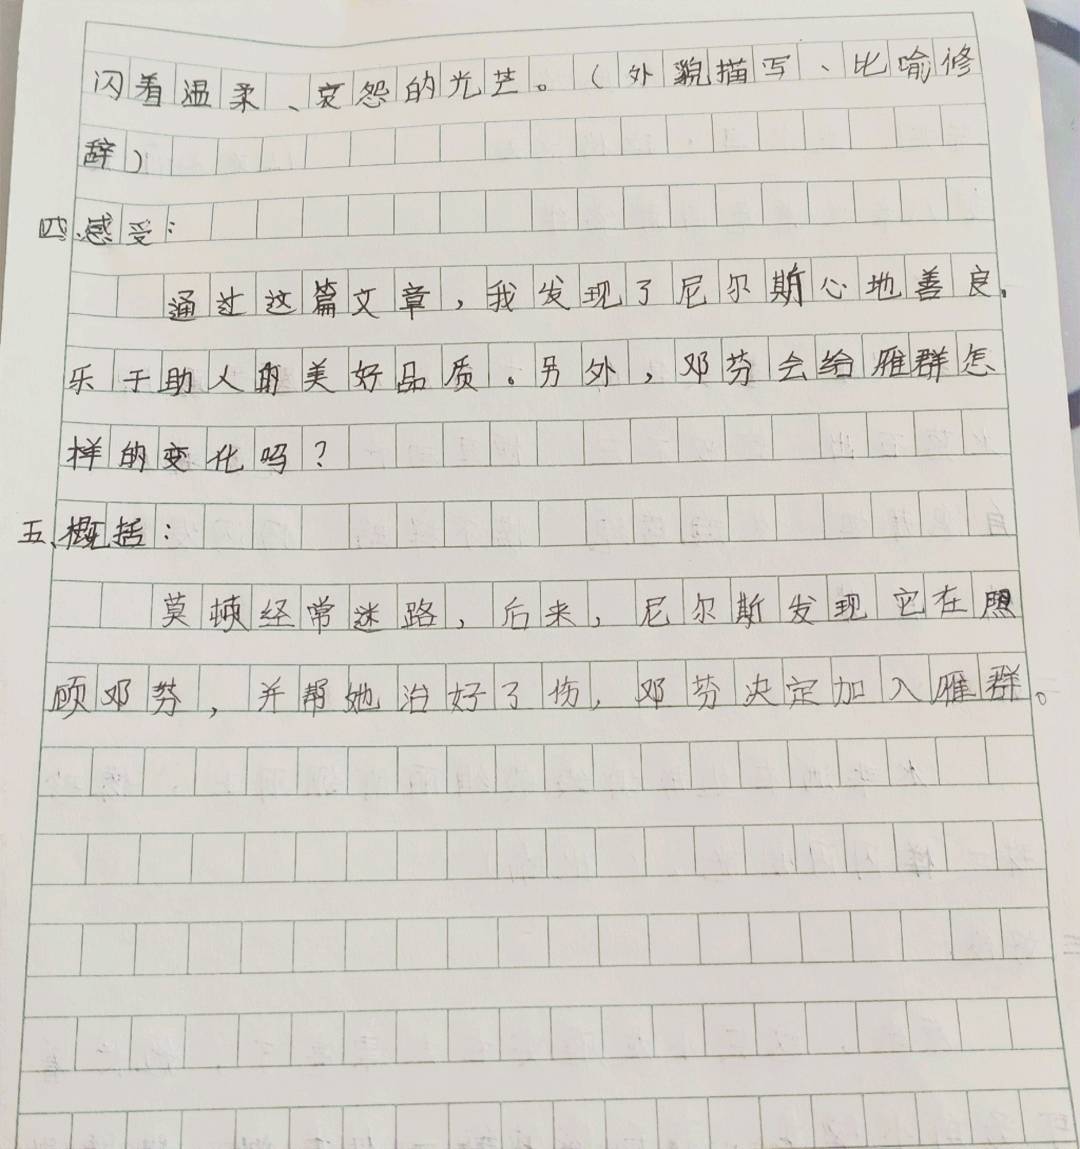 闪着温柔、哀怨的光芒。（外貌描写、比喻修
辞）
四、感受：
通过这篇文章，我发现了尼尔斯心地善良，
乐于助人的美好品质。另外，邓芬会给雁群怎
样的变化吗？
五、概括：
莫顿经常迷路，后来，尼尔斯发现它在照
顾邓芬，并帮她治好了伤，邓芬决定加入雁群。